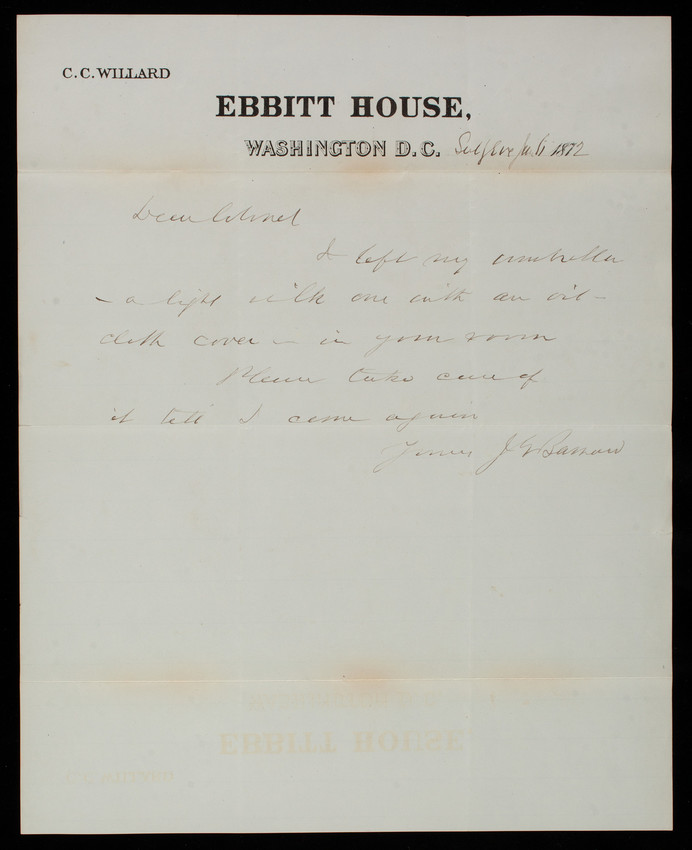 C. C. WILLARD
EBBITT HOUSE,
WASHINGTON D.C. 1872
Dear Colonel
I left my umbrella
– a light silk one with an oil-
cloth cover – in your room
Please take care of
it till I come again
Yours J G Barnard
EBBITT HOUSE